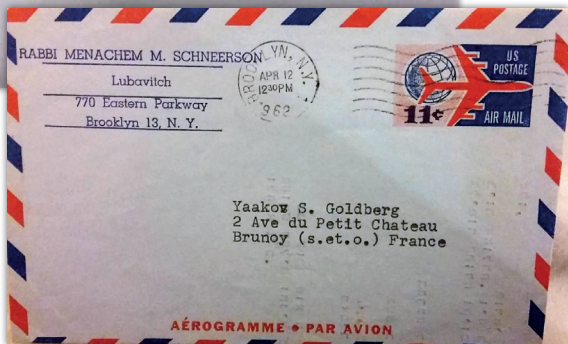 RABBI MENACHEM M. SCHNEERSON
Lubavitch
770 Eastern Parkway
Brooklyn 13, N. Y.
BROOKLYN, N.Y.
APR 12
1230PM
1962
US
POSTAGE
11¢
AIR MAIL
Yaakov S. Goldberg
2 Ave du Petit Chateau
Brunoy (s.et.o.) France
AÉROGRAMME • PAR AVION